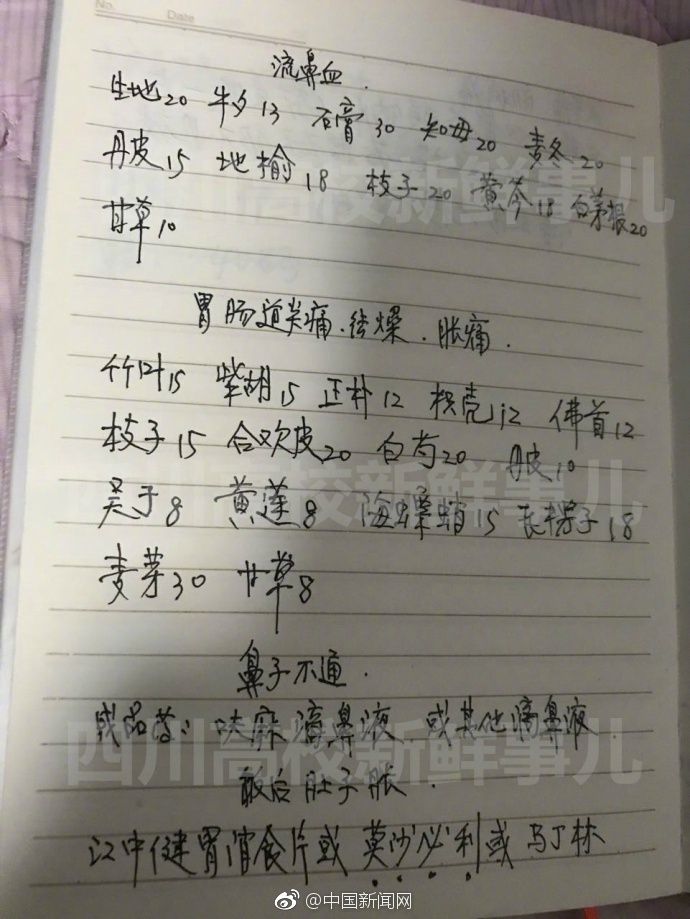 No. Date
流鼻血.
生地20 牛夕13 石膏30 知母20 麦冬20
丹皮15 地榆18 枝子20 黄芩18 白茅根20
甘草10
胃肠道炎痛. 燥. 胀痛.
竹叶15 柴胡15 正朴12 枳壳12 佛首12
枝子15 合欢皮20 白芍20 丹皮10
吴于8 黄莲8 海螵蛸15 18
麦芽30 甘草8
鼻子不通.
成品药: 呋麻滴鼻液 或其他滴鼻液.
饭后肚子胀.
江中健胃消食片或 莫沙必利或 马丁林
四川高校新鲜事儿
四川高校新鲜事儿
四川高校新鲜事儿
@中国新闻网